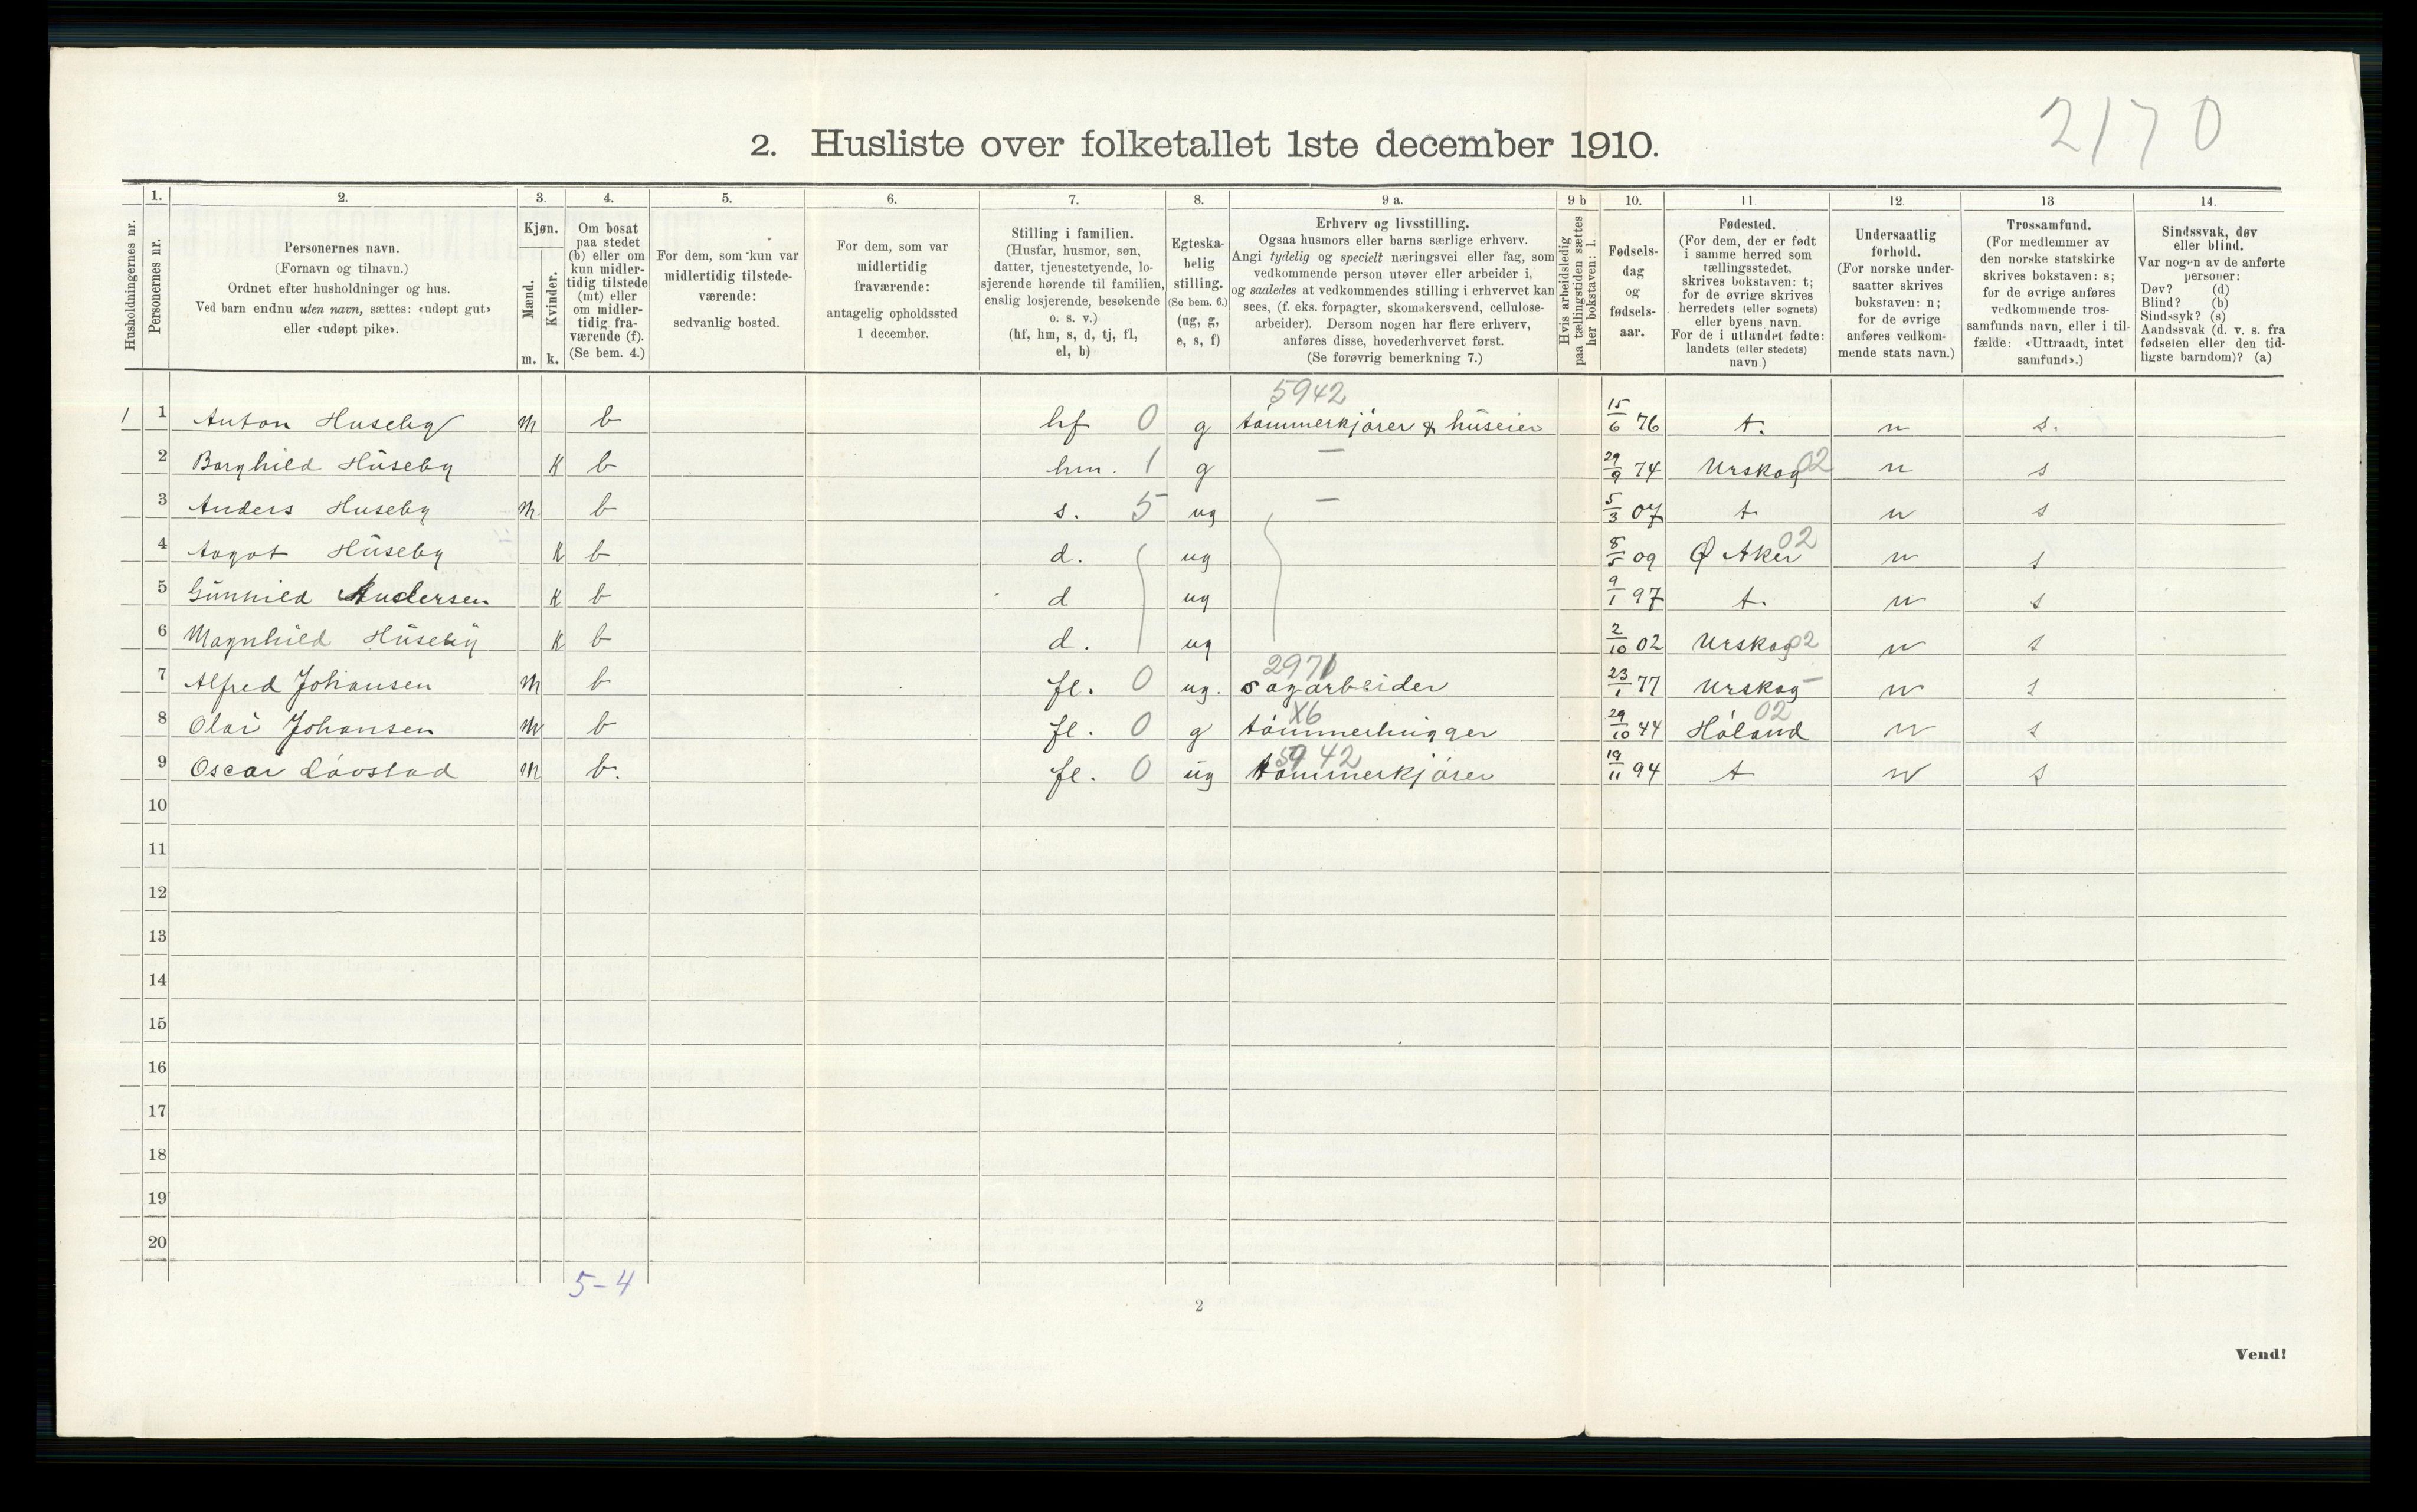 2170
2. Husliste over folketallet 1ste december 1910.
Husholdningernes nr.
1.
Personernes nr.
2.
Personernes navn.
(Fornavn og tilnavn.)
Ordnet efter husholdninger og hus.
Ved barn endnu uten navn, sættes: «udøpt gut»
eller «udøpt pike».
3.
Kjøn.
Mænd.
m.
Kvinder.
k.
4.
Om bosat
paa stedet
(b) eller om
kun midler-
tidig tilstede
(mt) eller
om midler-
tidig fra-
værende (f).
(Se bem. 4.)
5.
For dem, som kun var
midlertidig tilstede-
værende:
sedvanlig bosted.
6.
For dem, som var
midlertidig
fraværende:
antagelig opholdssted
1 december.
7.
Stilling i familien.
(Husfar, husmor, søn,
datter, tjenestetyende, lo-
sjerende hørende til familien,
enslig losjerende, besøkende
o. s. v.)
(hf, hm, s, d, tj, fl,
el, b)
8.
Egteska-
belig
stilling.
(Se bem. 6.)
(ug, g,
e, s, f)
9 a.
Erhverv og livsstilling.
Ogsaa husmors eller barns særlige erhverv.
Angi tydelig og specielt næringsvei eller fag, som
vedkommende person utøver eller arbeider i,
og saaledes at vedkommendes stilling i erhvervet kan
sees, (f. eks. forpagter, skomakersvend, cellulose-
arbeider). Dersom nogen har flere erhverv,
anføres disse, hovederhvervet først.
(Se forøvrig bemerkning 7.)
9 b
Hvis arbeidsledig
paa tællingstiden sættes
her bokstaven: l.
10.
Fødsels-
dag
og
fødsels-
aar.
11.
Fødested.
(For dem, der er født
i samme herred som
tællingsstedet,
skrives bokstaven: t;
for de øvrige skrives
herredets (eller sognets)
eller byens navn.
For de i utlandet fødte:
landets (eller stedets)
navn.)
12.
Undersaatlig
forhold.
(For norske under-
saatter skrives
bokstaven: n;
for de øvrige
anføres vedkom-
mende stats navn.)
13
Trossamfund.
(For medlemmer av
den norske statskirke
skrives bokstaven: s;
for de øvrige anføres
vedkommende tros-
samfunds navn, eller i til-
fælde: «Uttraadt, intet
samfund».)
14.
Sindssvak, døv
eller blind.
Var nogen av de anførte
personer:
Døv? (d)
Blind? (b)
Sindssyk? (s)
Aandssvak (d. v. s. fra
fødselen eller den tid-
ligste barndom)? (a)
5942
1 1 Anton Huseby m b hf 0 g tømmerkjører & huseier 15/6 76 t. n s.
2 Borghild Huseby K b hm. 1 g — 29/9 74 Urskog 02 n s
3 Anders Huseby m b s. 5 ug — 5/3 07 t n s
4 Aagot Huseby K b d. ug 8/5 09 Ø Aker 02 n s
5 Gunhild Andersen K b d ug 9/1 97 t. n s
6 Magnhild Huseby K b d. ug 2/10 02 Urskog 02 n s
2971
7 Alfred Johansen m b fl. 0 ug. sagarbeider 23/1 77 Urskog – n s
X6
8 Olai Johansen m b fl. 0 g tømmerhugger 29/10 44 Høland 02 n s
5942
9 Oscar Løvstad m b. fl. 0 ug tømmerkjører 19/11 94 t n s
10
11
12
13
14
15
16
17
18
19
20
5–4
2
Vend!